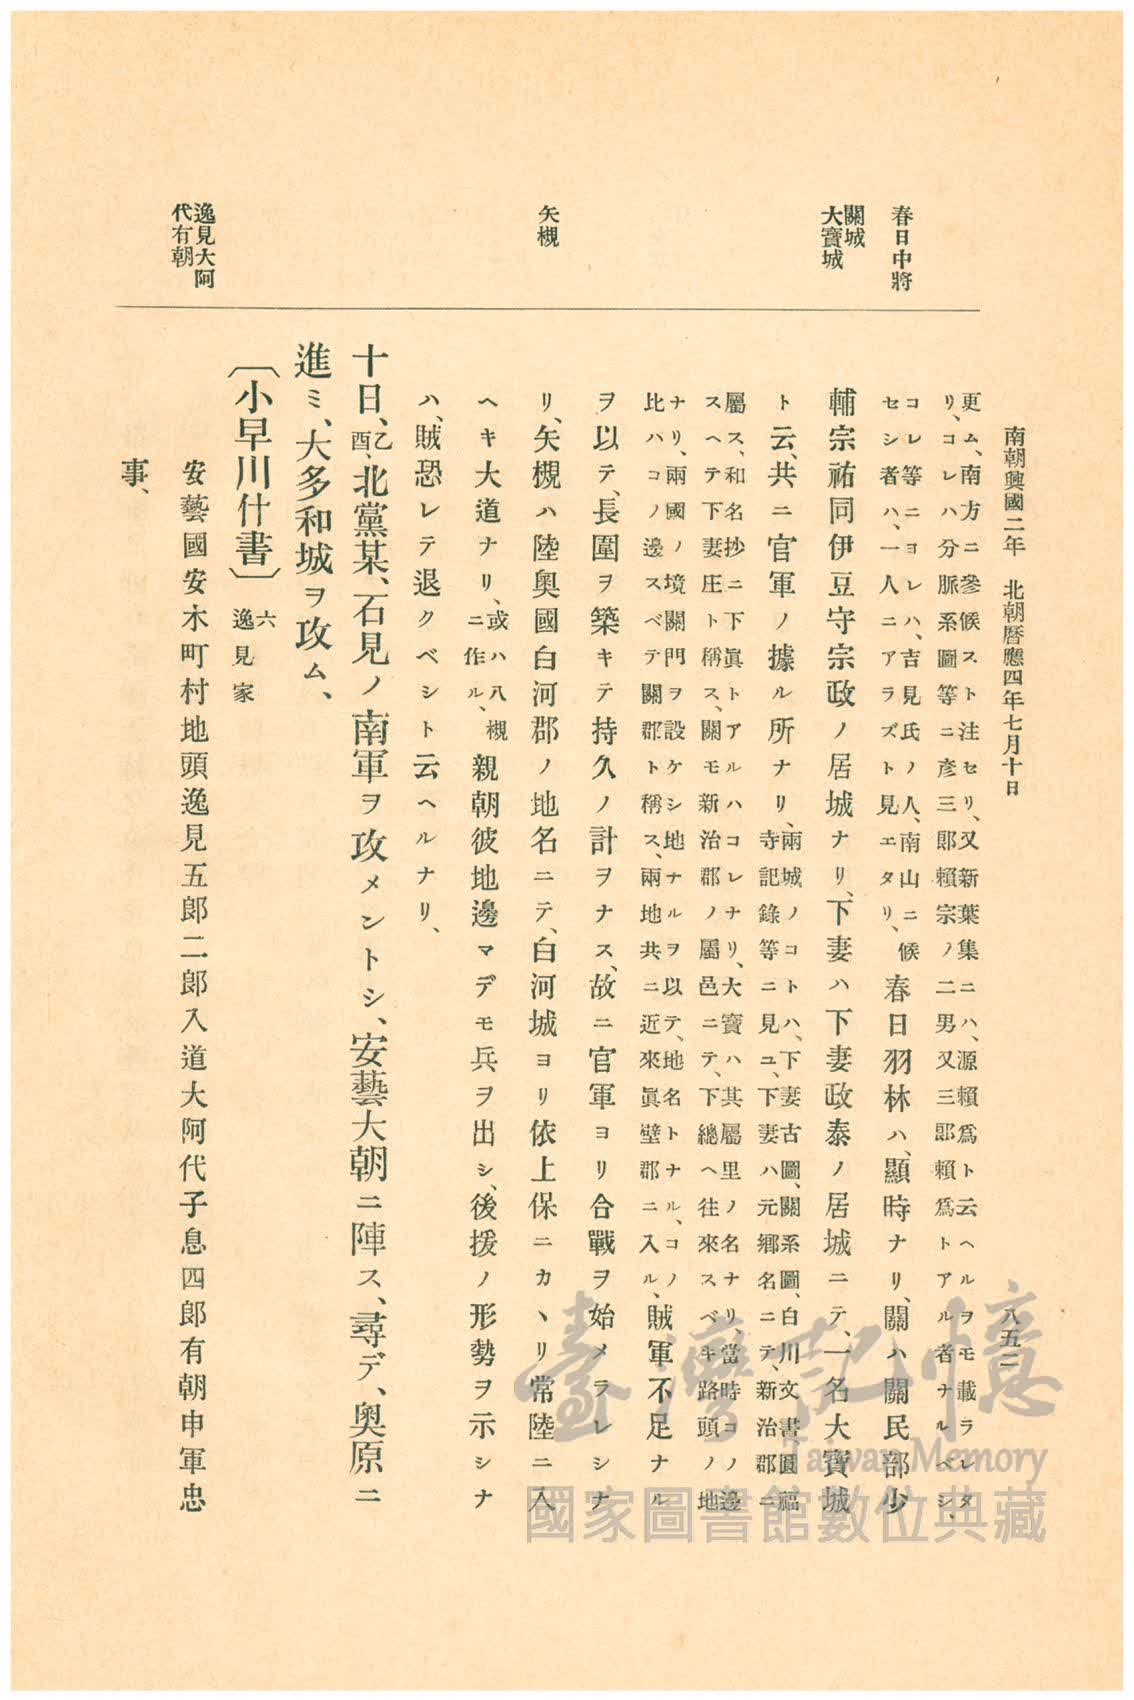 南朝興國二年　北朝曆應四年七月十日
八五二
春日中將
關城
大寶城
矢槻
逸見大阿
代有朝
更ム、南方ニ參候スト注セリ、又新葉集ニハ、源賴爲ト云ヘルヲモ載ラレタ
リ、コレハ分脈系圖等ニ彦三郎賴宗ノ二男又三郎賴爲トアル者ナルベシ、
コレ等ニヨレハ、吉見氏ノ人、南山ニ候
セシ者ハ、一人ニアラズト見エタリ、
春日羽林ハ、顯時ナリ、關ハ關民部少
輔宗祐同伊豆守宗政ノ居城ナリ、下妻ハ下妻政泰ノ居城ニテ、一名大寶城
ト云、共ニ官軍ノ據ル所ナリ、
兩城ノコトハ、下妻古圖、關系圖、白川文書圓福
寺記錄等ニ見ユ、下妻ハ元鄉名ニテ、新治郡ニ
屬ス、和名抄ニ下眞トアルハコレナリ、大寶ハ其屬里ノ名ナリ、當時コノ邊
スヘテ下妻庄ト稱ス、關モ新治郡ノ屬邑ニテ、下總ヘ往來スベキ路頭ノ地
ナリ、兩國ノ境關門ヲ設ケシ地ナルヲ以テ、地名トナル、コノ
比ハコノ邊スベテ關郡ト稱ス、兩地共ニ近來眞壁郡ニ入ル、
賊軍不足ナル
ヲ以テ、長圍ヲ築キテ持久ノ計ヲナス、故ニ官軍ヨリ合戰ヲ始メラレシナ
リ、矢槻ハ陸奧國白河郡ノ地名ニテ、白河城ヨリ依上保ニカヽリ常陸ニ入
ヘキ大道ナリ、
或ハ八槻
ニ作ル、
親朝彼地邊マデモ兵ヲ出シ、後援ノ形勢ヲ示シナ
ハ、賊恐レテ退クベシト云ヘルナリ、
十日、乙酉、北黨某、石見ノ南軍ヲ攻メントシ、安藝大朝ニ陣ス、尋デ、奧原ニ
進ミ、大多和城ヲ攻ム、
〔小早川什書〕
六
逸見家
安藝國安木町村地頭逸見五郎二郎入道大阿代子息四郎有朝申軍忠
事、
臺灣記憶
Taiwan Memory
國家圖書館數位典藏